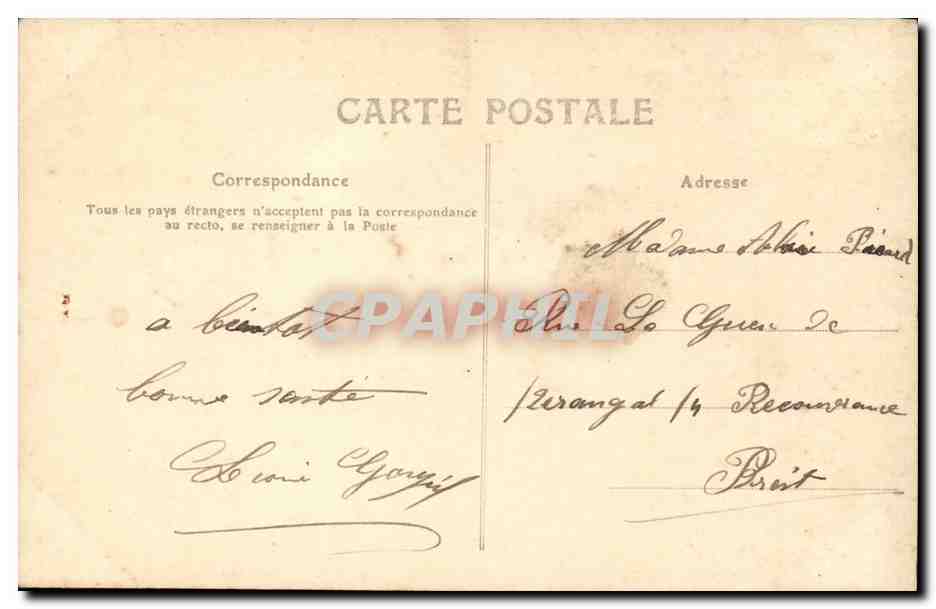 CARTE POSTALE
Correspondance
Tous les pays étrangers n'acceptent pas la correspondance
au recto, se renseigner à la Poste
a bientot
bonne santé
Adresse
Madame Picard
Rue Le Guen de
Kerangal 14 Recouvrance
Brest
CPAPHIL